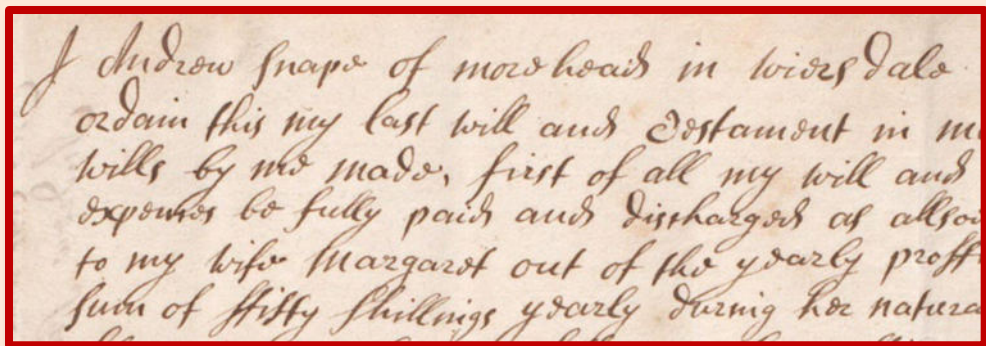 I Andrew Snape of morehead in wiersdale
ordain this my last will and Testament in
wills by me made, first of all my will and
expenses be fully paid and discharged as allso
to my wife Margaret out of the yearly proffi
sum of ffifty shillings yearly during her natura